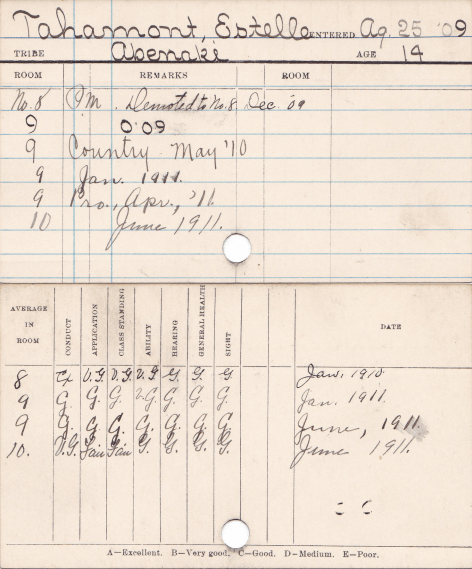 Tahamont, Estelle ENTERED Ag. 25 '09
TRIBE Abenaki AGE 14
ROOM REMARKS ROOM
No. 8 P.M. Demoted to No. 8 Dec. '09
9 O.09
9 Country May '10
9 Jan. 1911.
9 Pro., Apr., '11.
10 June 1911.
AVERAGE IN ROOM CONDUCT APPLICATION CLASS STANDING ABILITY HEARING GENERAL HEALTH SIGHT DATE
8 Ex V.G. V.G. V.G. G. G. G. Jan. 1910
9 G. G. G. V.G. G. G. G. Jan. 1911.
9 G. G. G. G. G. G. G. June, 1911.
10. V.G. Fair Fair G. G. G. G. June 1911.
A—Excellent. B—Very good. C—Good. D—Medium. E—Poor.